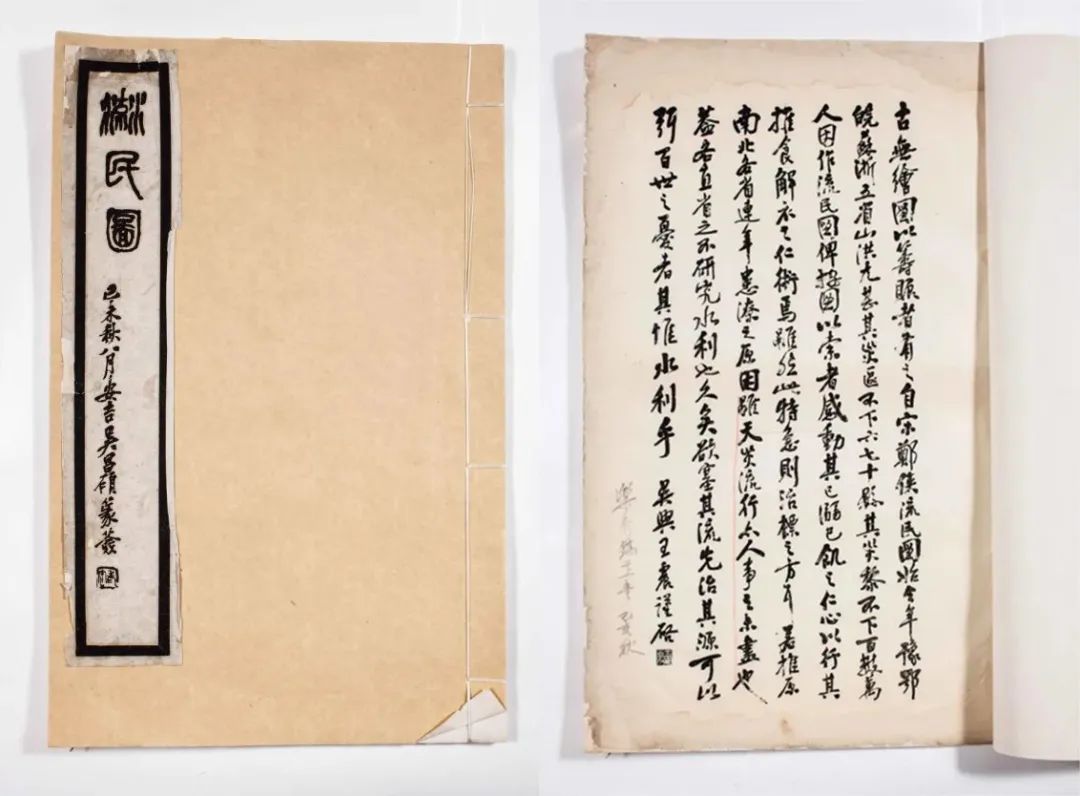 流民圖
己未秋八月安吉吳昌碩篆簽
古無繪圖以籌賑者有之自宋鄭俠流民圖始今年豫鄂
皖蘇浙五省山洪尤甚其災區不下六七十縣其災黎不下百數萬
人因作流民圖俾按圖以索者感動其己溺己飢之仁心以行其
推食解衣之仁術焉雖然此特急則治標之方耳若推原
南北各省連年患潦之原因雖天災流行亦人事之未盡也
蓋各直省之不研究水利也久矣欲塞其流先治其源可以
弭百世之憂者其惟水利乎 吳興王震謹啓